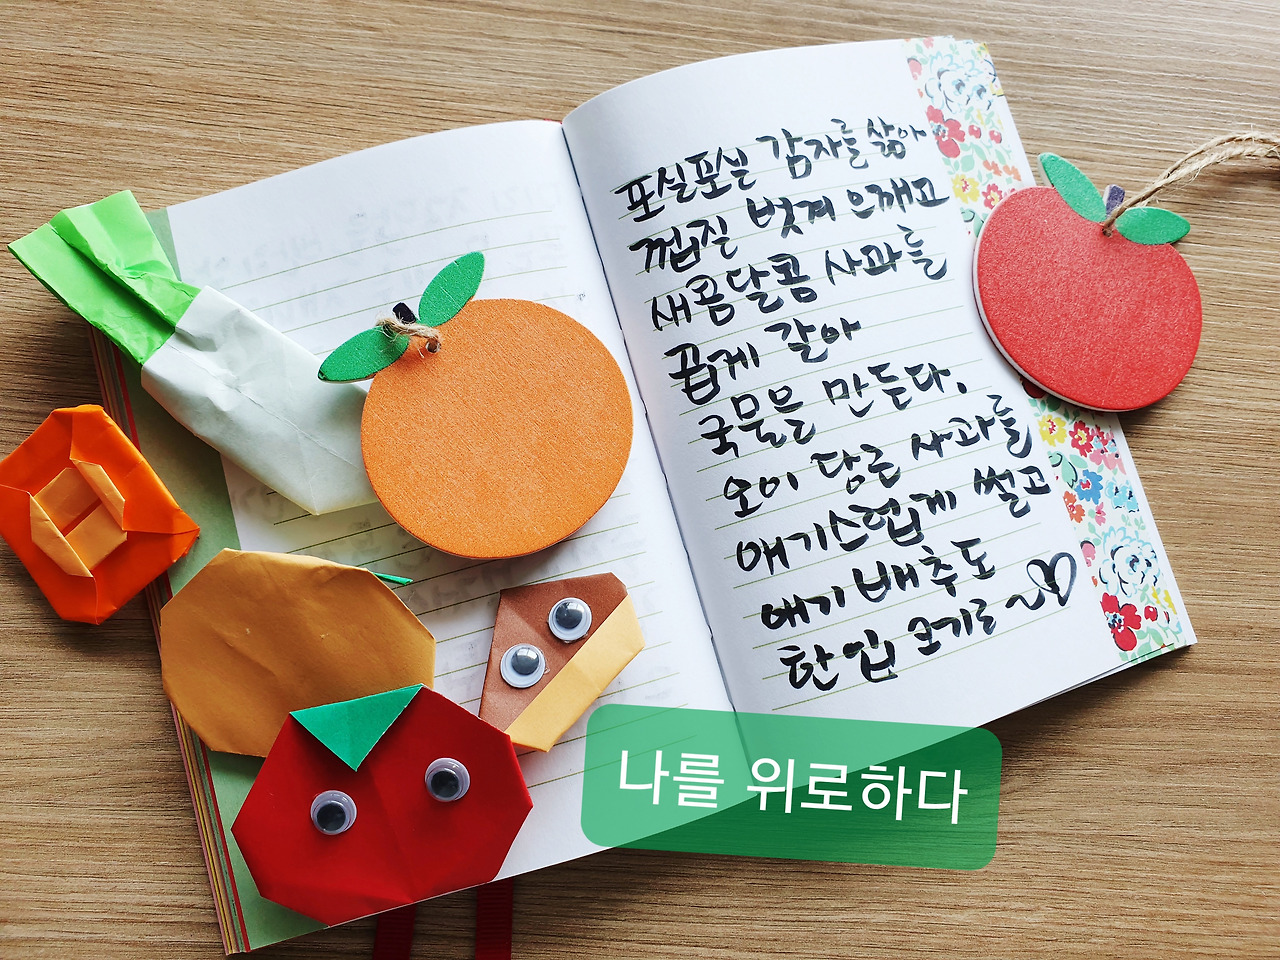 포실포실 감자를 삶아
껍질 벗겨 으깨고
새콤달콤 사과를
곱게 갈아
국물을 만든다.
오이 당근 사과를
애기스럽게 썰고
애기 배추도
한입 크기로~
나를 위로하다